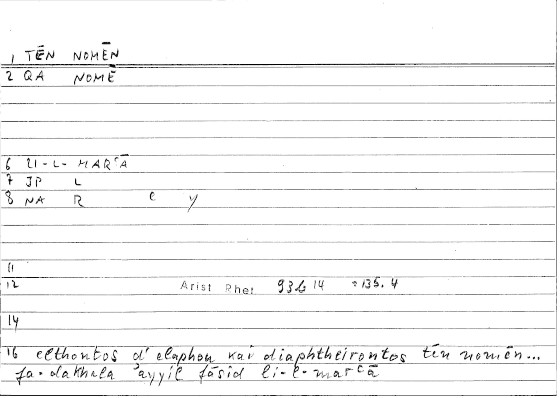 1 TĒN NOMĒN
2 QA NOMĒ
6 LI-L-MARʿĀ
7 JP L
8 NA R e y
11
12 Arist Rhet 93b14 = 135.4
14
16 elthontos d' elaphou kai diaphtheirontos tēn nomēn...
fa-dakhala ʾayyil fāsid li-l-marʿā